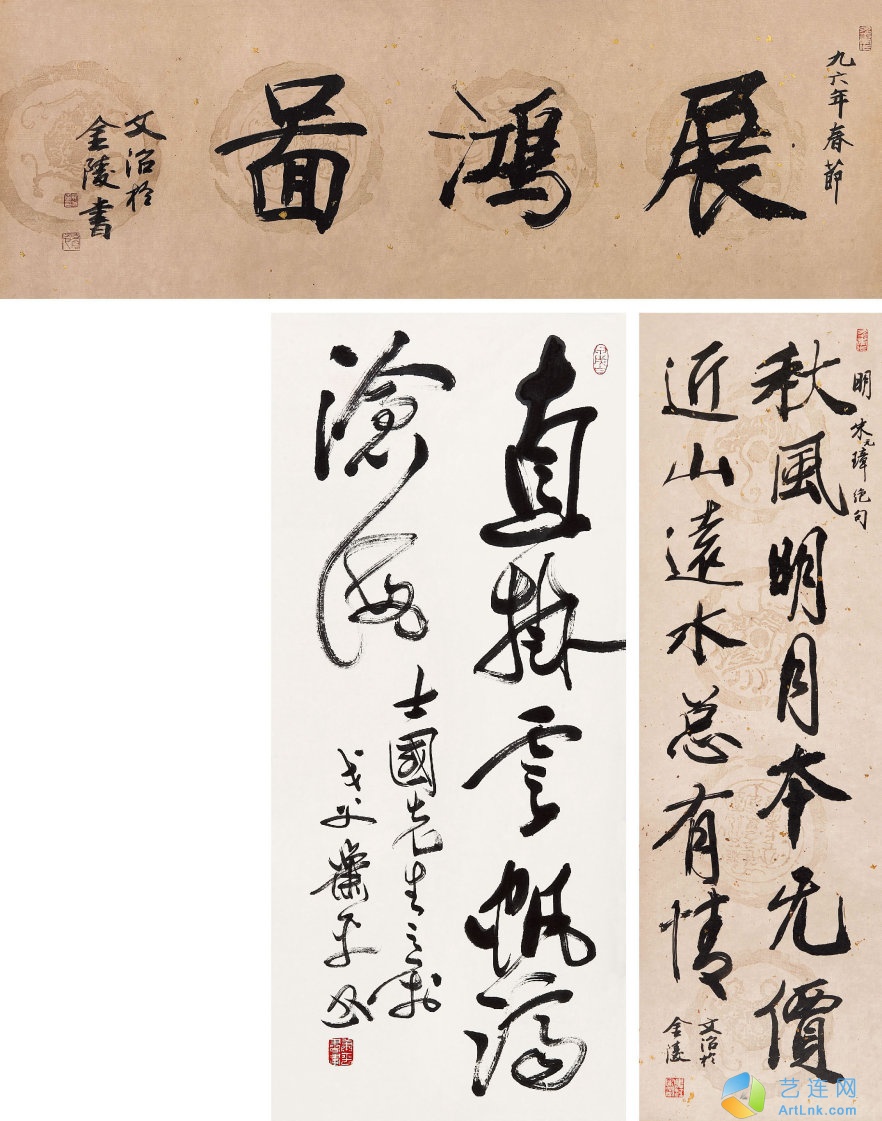 九六年春節
展鴻啚
文治於
金陵書
直掛雲帆濟
滄海
士國先生之
戊子蕭平书
明朱元璋绝句
秋風明月本无價
近山遠水总有情
文治於
金陵
艺连网
ArtLnk.com